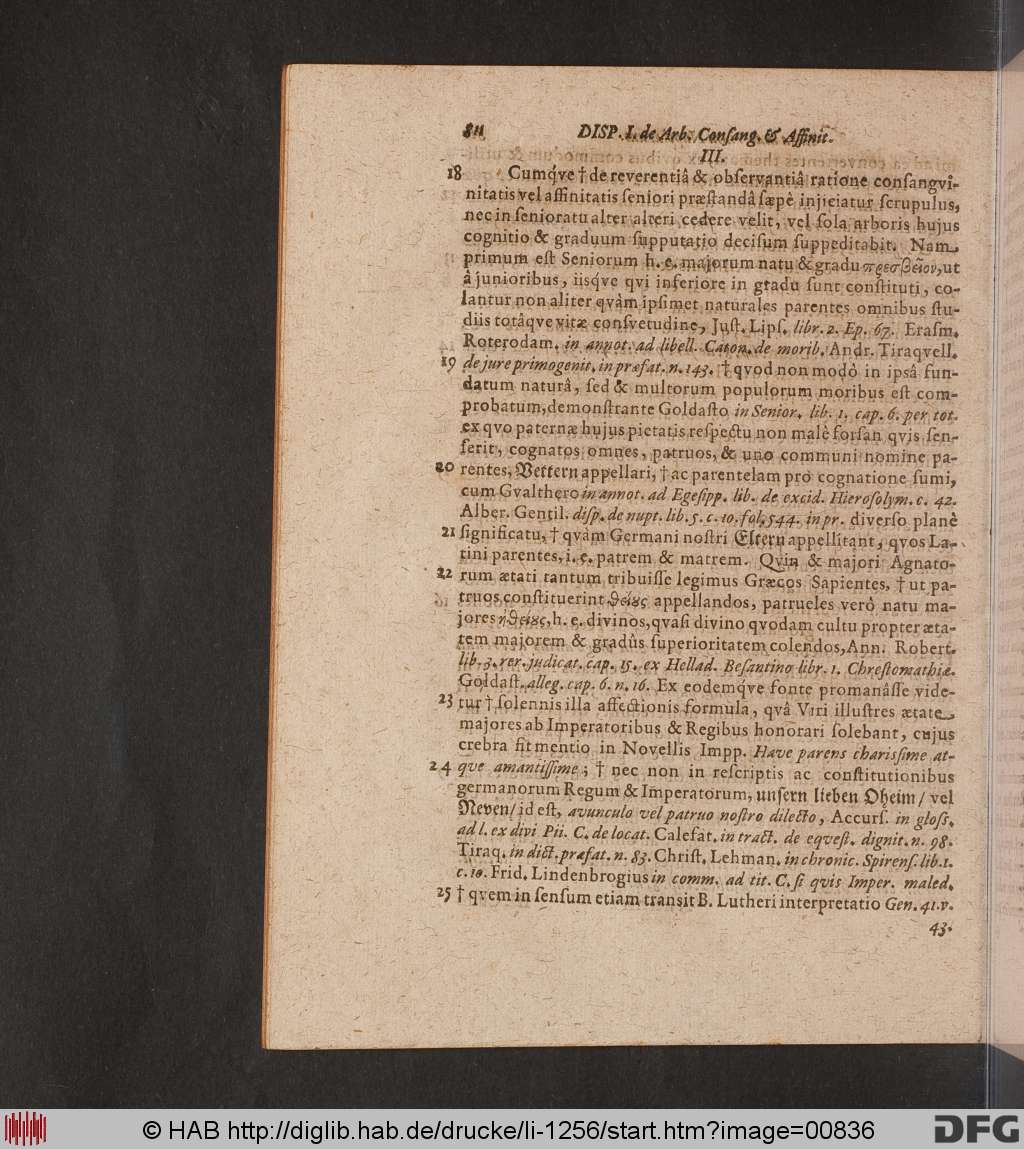 811 DISP. I. de Arb. Conſang. & Affinit.
III.
18 Cumq́ve † de reverentiâ & obſervantiâ ratione conſangvi-
nitatis vel affinitatis ſeniori præſtandâ ſæpè injiciatur ſcrupulus,
nec in ſenioratu alter alteri cedere velit, vel ſola arboris hujus
cognitio & graduum ſupputatio deciſum ſuppeditabit. Nam
primum eſt Seniorum h. e. majorum natu & gradu πρεσβεῖον, ut
â junioribus, iisq́ve qvi inferiore in gradu ſunt conſtituti, co-
lantur non aliter qvàm ipſimet naturales parentes omnibus ſtu-
diis totâqve vitæ conſvetudine, Juſt. Lipſ. libr. 2. Ep. 67. Eraſm.
Roterodam. in annot. ad libell. Caton. de morib. Andr. Tiraqvell.
19 de jure primogenit. in præfat. n. 143. † qvod non modò in ipsâ fun-
datum naturâ, ſed & multorum populorum moribus eſt com-
probatum, demonſtrante Goldaſto in Senior. lib. 1. cap. 6. per tot.
ex qvo paternæ hujus pietatis reſpectu non malè forſan qvis ſen-
ſerit, cognatos omnes, patruos, & uno communi nomine pa-
20 rentes, Vettern appellari, † ac parentelam pro cognatione ſumi,
cum Gvalthero in annot. ad Egeſipp. lib. de excid. Hieroſolym. c. 42.
Alber. Gentil. diſp. de nupt. lib. 5. c. 10. fol. 544. in pr. diverſo planè
21 ſignificatu, † qvàm Germani noſtri Eltern appellitant, qvos La-
tini parentes, i. e. patrem & matrem. Qvin & majori Agnato-
22 rum ætati tantum tribuiſſe legimus Græcos Sapientes, † ut pa-
truos conſtituerint θείους appellandos, patrueles verò natu ma-
jores ἠθείους, h. e. divinos, qvaſi divino qvodam cultu propter æta-
tem majorem & gradûs ſuperioritatem colendos, Ann. Robert.
lib. 3. rer. judicat. cap. 15. ex Hellad. Beſantino libr. 1. Chreſtomathiæ.
Goldaſt. alleg. cap. 6. n. 16. Ex eodemqve fonte promanâſſe vide-
23 tur † ſolennis illa affectionis formula, qvâ Viri illuſtres ætate
majores ab Imperatoribus & Regibus honorari ſolebant, cujus
crebra fit mentio in Novellis Impp. Have parens chariſſime at-
24 que amantiſſime; † nec non in reſcriptis ac conſtitutionibus
germanorum Regum & Imperatorum, unſern lieben Oheim / vel
Neven / id eſt, avunculo vel patruo noſtro dilecto, Accurſ. in gloſſ.
ad l. ex divi Pii. C. de locat. Calefat. in tract. de eqveſt. dignit. n. 98.
Tiraq. in dict. præfat. n. 83. Chriſt. Lehman. in chronic. Spirenſ. lib. 1.
c. 10. Frid. Lindenbrogius in comm. ad tit. C. ſi qvis Imper. maled.
25 † qvem in ſenſum etiam transit B. Lutheri interpretatio Gen. 41. v.
43.
© HAB http://diglib.hab.de/drucke/li-1256/start.htm?image=00836
DFG